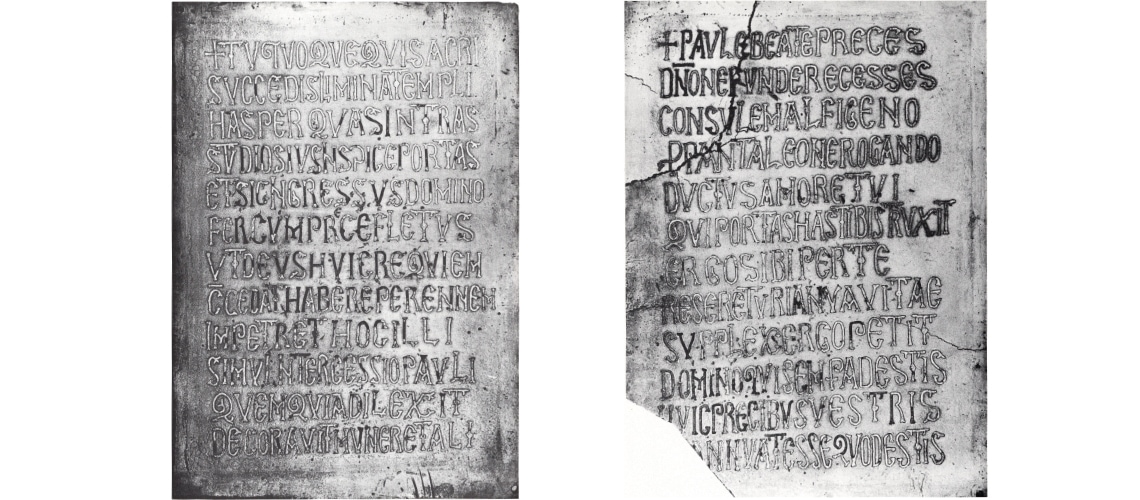 +TV QVOQVE QVI SACRI
SVCCEDIS LIMINA TEMPLI
HAS PER QVAS INTRAS
STVDIOSIVS INSPICE PORTAS
ET SIC INGRESSVS DOMINO
FER CVM PRECE FLETVS
VT DEVS HVIC REQVIEM
C̄CEDAT HABERE PERENNEM
IMPETRET HOC ILLI
SIMVL INTERCESSIO PAVLI
QVEM QVIA DILEXIT
DECORAVIT MVNERE TALI
+PAVLE BEATE PRECES
DN̄O NE FVNDERE CESSES
CONSVLE MALFIGENO
P PANTALEONE ROGANDO
DVCTVS AMORE TVI
QVI PORTAS HAS TIBI STRVXIT
ERGO SIBI PER TE
RESERETVR IANVA VITAE
SVPPLEX ERGO PETIT
DOMINO QVI SEMP ADESTIS
HVIC PRECIBVS VESTRIS
ANNVAT ESSE QVOD ESTIS